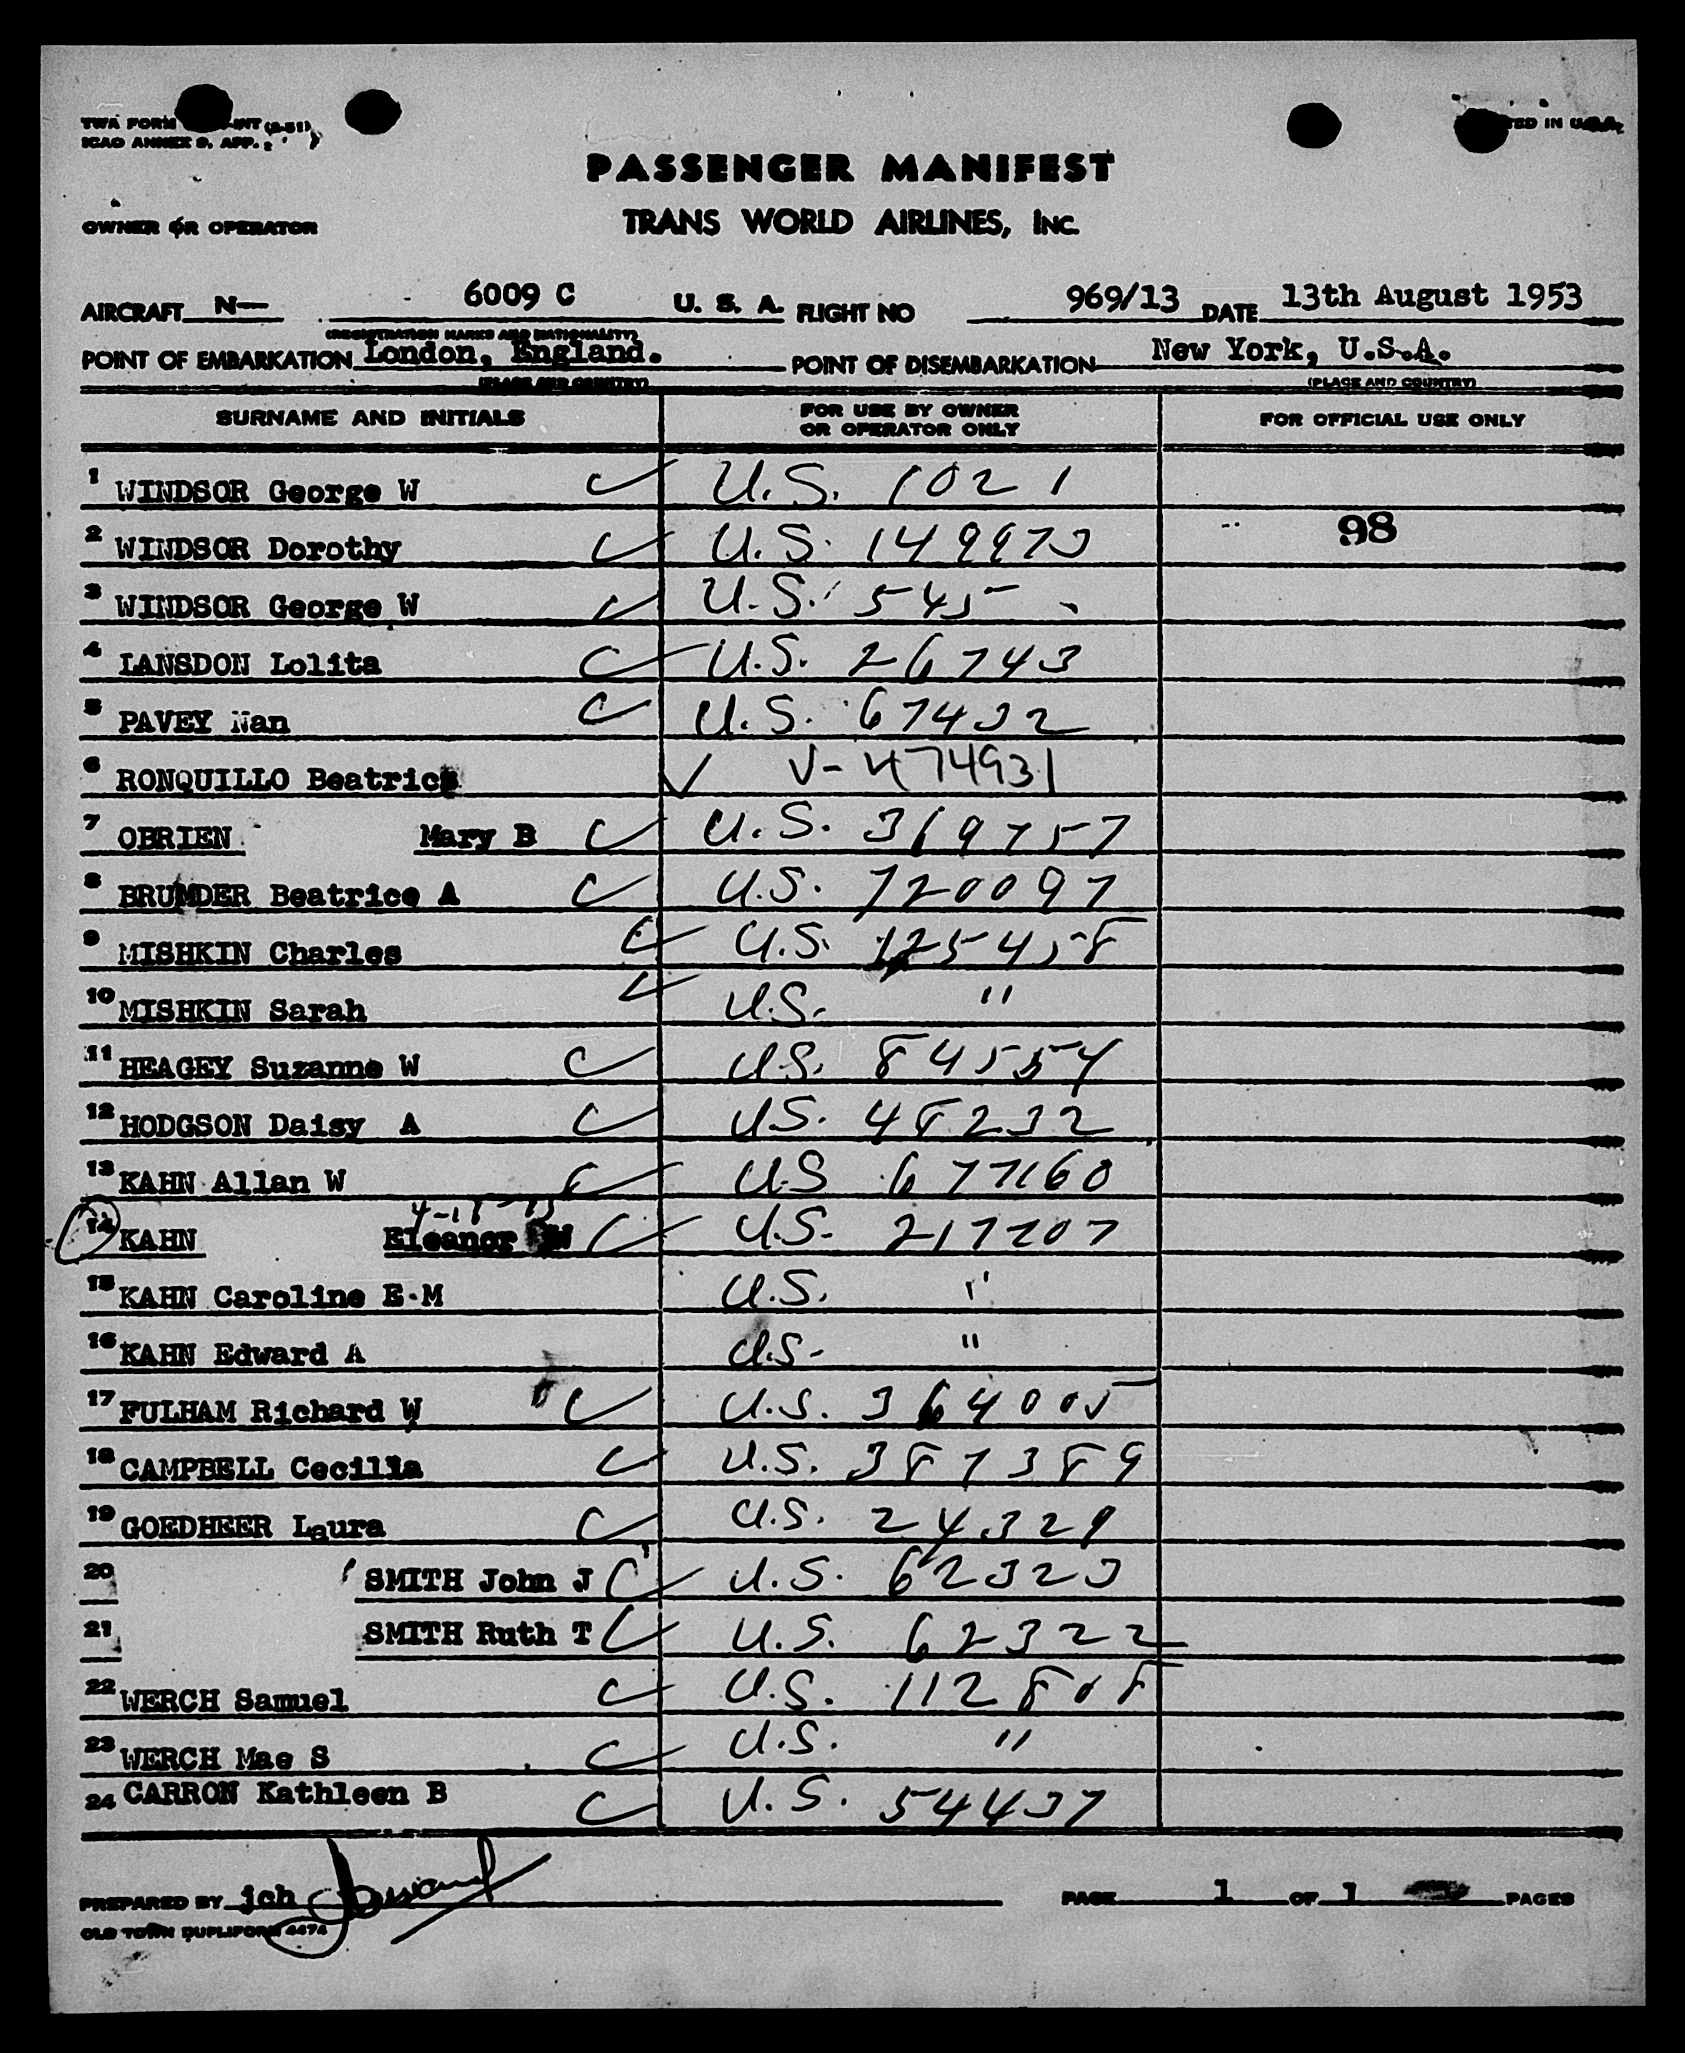 TWA FORM -INT (2-51)
ICAO ANNEX 9, APP.
TED IN U.S.A.
PASSENGER MANIFEST
OWNER OR OPERATOR TRANS WORLD AIRLINES, INC.
AIRCRAFT N— 6009 C U. S. A. FLIGHT NO 969/13 DATE 13th August 1953
(REGISTRATION MARKS AND NATIONALITY)
POINT OF EMBARKATION London, England. POINT OF DISEMBARKATION New York, U.S.A.
(PLACE AND COUNTRY) (PLACE AND COUNTRY)
SURNAME AND INITIALS FOR USE BY OWNER OR OPERATOR ONLY FOR OFFICIAL USE ONLY
1 WINDSOR George W U.S. 1021
2 WINDSOR Dorothy U.S. 149973 98
3 WINDSOR George W U.S. 545
4 LANSDON Lolita U.S. 26743
5 PAVEY Nan U.S. 67432
6 RONQUILLO Beatrice V-474931
7 OBRIEN Mary B U.S. 369757
8 BRUMDER Beatrice A U.S. 720097
9 MISHKIN Charles U.S. 125458
10 MISHKIN Sarah U.S. "
11 HEAGEY Suzanne W U.S. 84554
12 HODGSON Daisy A U.S. 48232
13 KAHN Allan W U.S 677160
14 KAHN Eleanor W U.S. 217707
15 KAHN Caroline E M U.S. "
16 KAHN Edward A U.S. "
17 FULHAM Richard W U.S. 364005
18 CAMPBELL Cecilia U.S. 387389
19 GOEDHEER Laura U.S. 24329
20 SMITH John J U.S. 62323
21 SMITH Ruth T U.S. 62322
22 WERCH Samuel U.S. 112808
23 WERCH Mae S U.S. "
24 CARRON Kathleen B U.S. 54437
PREPARED BY jch PAGE 1 OF 1 PAGES
OLD TOWN DUPLIFORM 4474